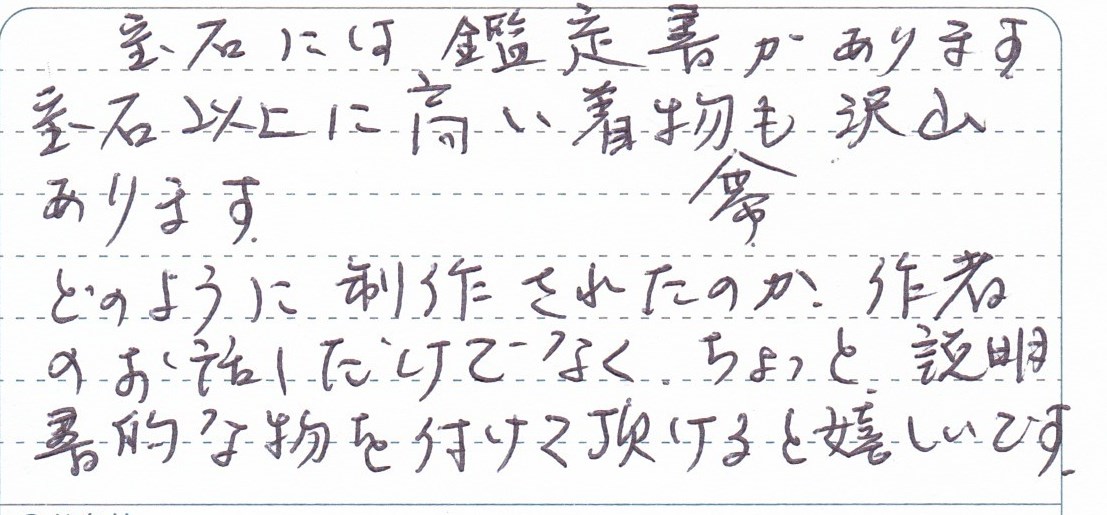 宝石には鑑定書があります
宝石以上に高い着物も沢山
あります 帯
どのように制作されたのか、作者
のお話しだけでなく、ちょっと説明
書的な物を付けて頂けると嬉しいです。